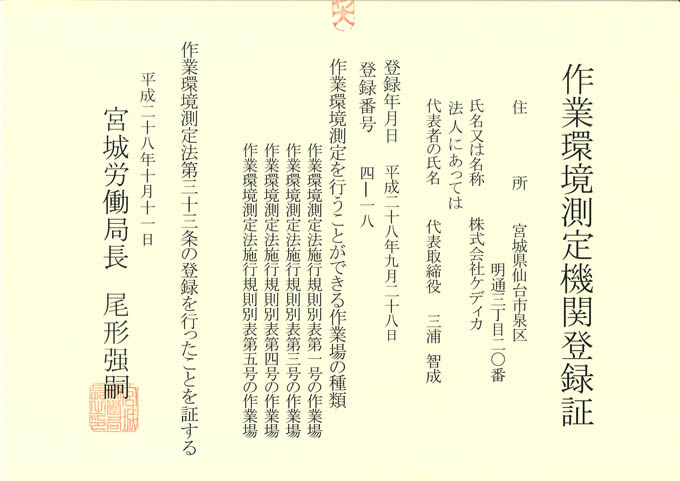 作業環境測定機関登録証
住所　宮城県仙台市泉区
明通三丁目二〇番
氏名又は名称　株式会社ケディカ
法人にあっては
代表者の氏名　代表取締役　三浦 智成
登録年月日　平成二十八年九月二十八日
登録番号　四ー一八
作業環境測定を行うことができる作業場の種類
作業環境測定法施行規則別表第一号の作業場
作業環境測定法施行規則別表第三号の作業場
作業環境測定法施行規則別表第四号の作業場
作業環境測定法施行規則別表第五号の作業場
作業環境測定法第三十三条の登録を行ったことを証する
平成二十八年十月十一日
宮城労働局長　尾形强嗣